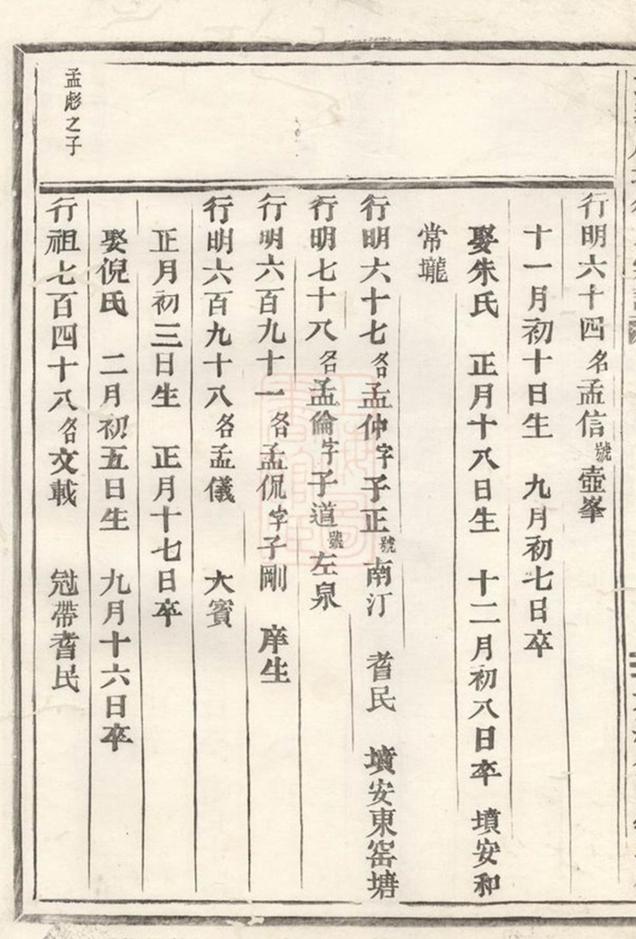 行明六十四名孟信號壺峯
十一月初十日生 九月初七日卒
娶朱氏 正月十八日生 十二月初八日卒 墳安和
常壠
行明六十七名孟仲字子正號南汀 耆民 墳安東窑塘
行明七十八名孟倫字子道號左泉
行明六百九十一名孟侃字子剛 庠生
行明六百九十八名孟儀 大賓
正月初三日生 正月十七日卒
娶倪氏 二月初五日生 九月十六日卒
孟彪之子
行祖七百四十八名文載 冠帶耆民